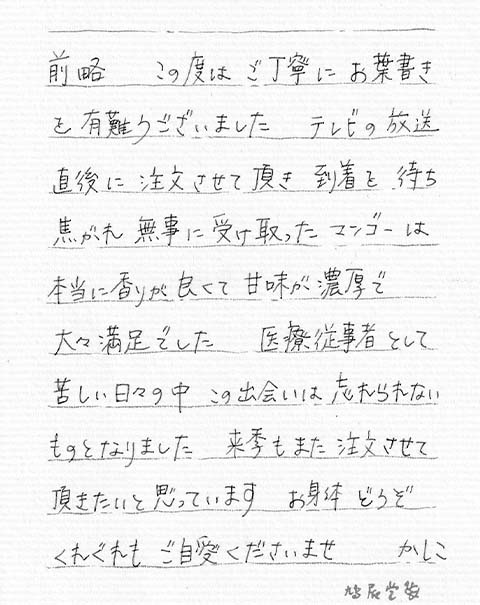 前略　この度は ご丁寧に お葉書き
を 有難うございました　テレビの 放送
直後に 注文させて 頂き 到着を 待ち
焦がれ 無事に 受け取った マンゴーは
本当に香りが 良くて 甘味が 濃厚で
大々満足でした　医療従事者として
苦しい日々の中 この出会いは 忘れられない
ものとなりました　来季もまた 注文させて
頂きたいと 思っています　お身体 どうぞ
くれぐれも ご自愛くださいませ　かしこ
鳩居堂製